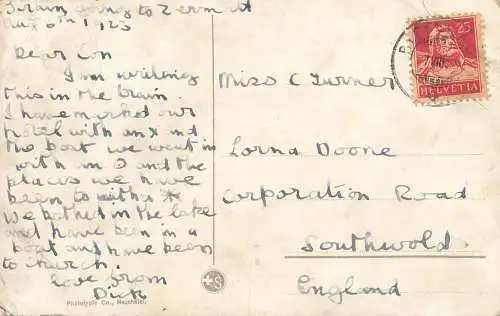 Train going to Zermat
Aug 6th 1923
Dear Con
I am writing
this in the train
I have marked our
hotel with an X and
the boat we went in
with an O and the
places we have
been to with a
We bathed in the lake
and have been in a
boat and have been
to church.
Love from
Dick
Miss C Turner
Lorna Doone
Corporation Road
Southwold
England
25
HELVETIA
Phototypie Co., Neuchâtel.